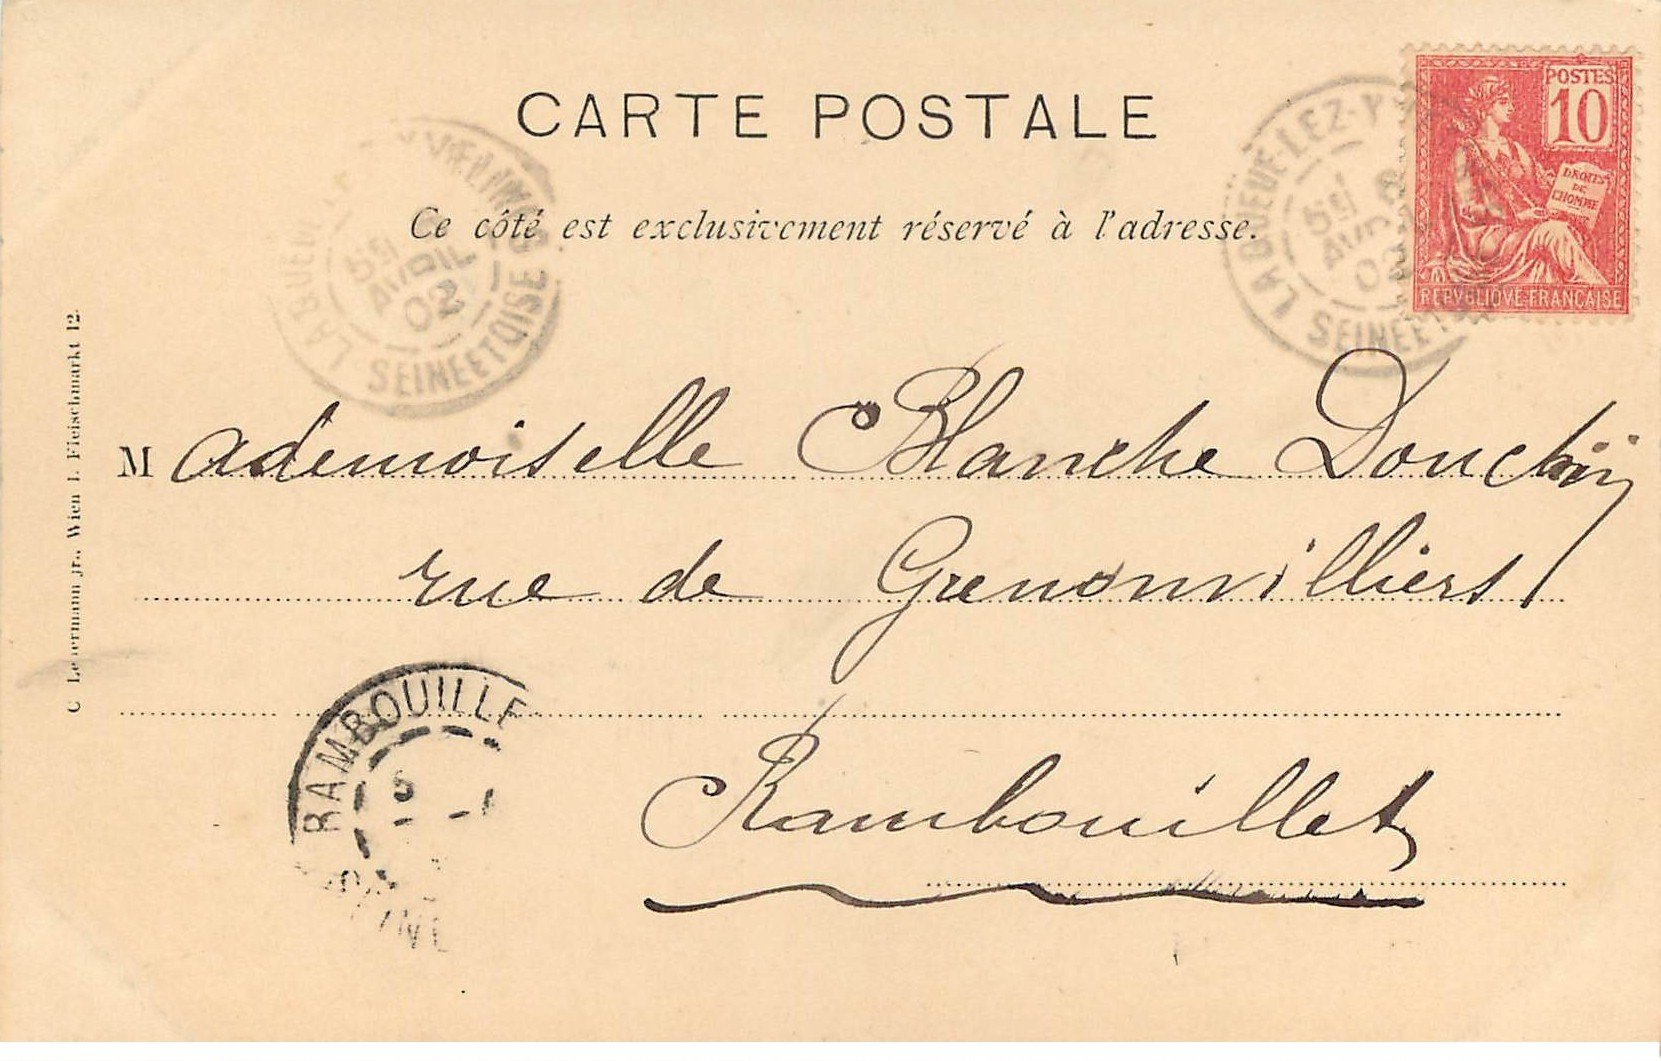 CARTE POSTALE
Ce côté est exclusivement réservé à l'adresse.
POSTES
10
DROITS
DE
L'HOMME
REPUBLIQUE FRANÇAISE
LA QUEUE-LEZ-Y
AVRIL
02
SEINE ET OISE
LA QUEUE
AVRIL
02
SEINE ET OISE
Mademoiselle Blanche Donchin
rue de Grenonvilliers
Rambouillet
RAMBOUILLE
C Ledermann jr., Wien I. Fleischmarkt 12.